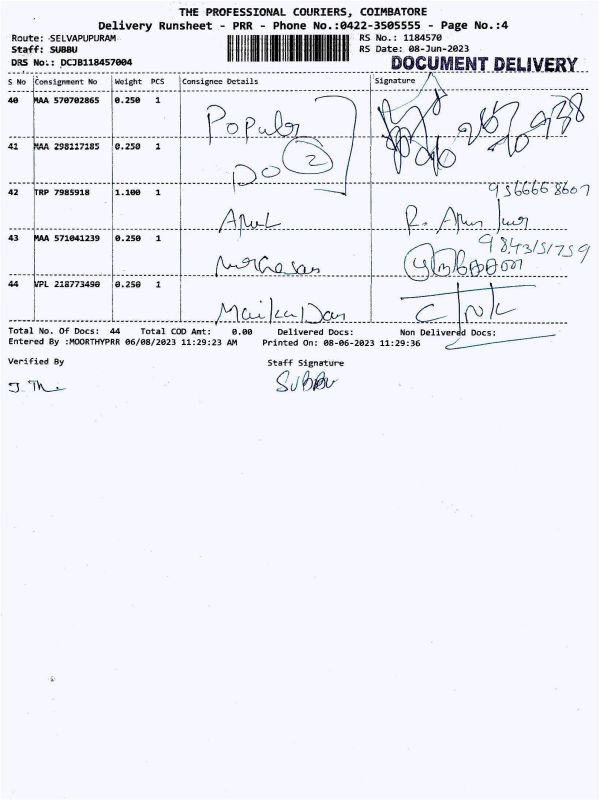 THE PROFESSIONAL COURIERS, COIMBATORE
Delivery Runsheet - PRR - Phone No.:0422-3505555 - Page No.:4
Route: SELVAPUPURAM
RS No.: 1184570
Staff: SUBBU
RS Date: 08-Jun-2023
DRS No.: DCJB118457004
DOCUMENT DELIVERY
S No Consignment No Weight PCS Consignee Details Signature
40 MAA 570702865 0.250 1
Popular
41 MAA 298117185 0.250 1
Do 2
42 TRP 7985918 1.100 1
9566668607
Arul
43 MAA 571041239 0.250 1
9843151759
44 VPL 218773490 0.250 1
Total No. Of Docs: 44 Total COD Amt: 0.00 Delivered Docs: Non Delivered Docs:
Entered By :MOORTHYPRR 06/08/2023 11:29:23 AM Printed On: 08-06-2023 11:29:36
Verified By Staff Signature
SUBBU